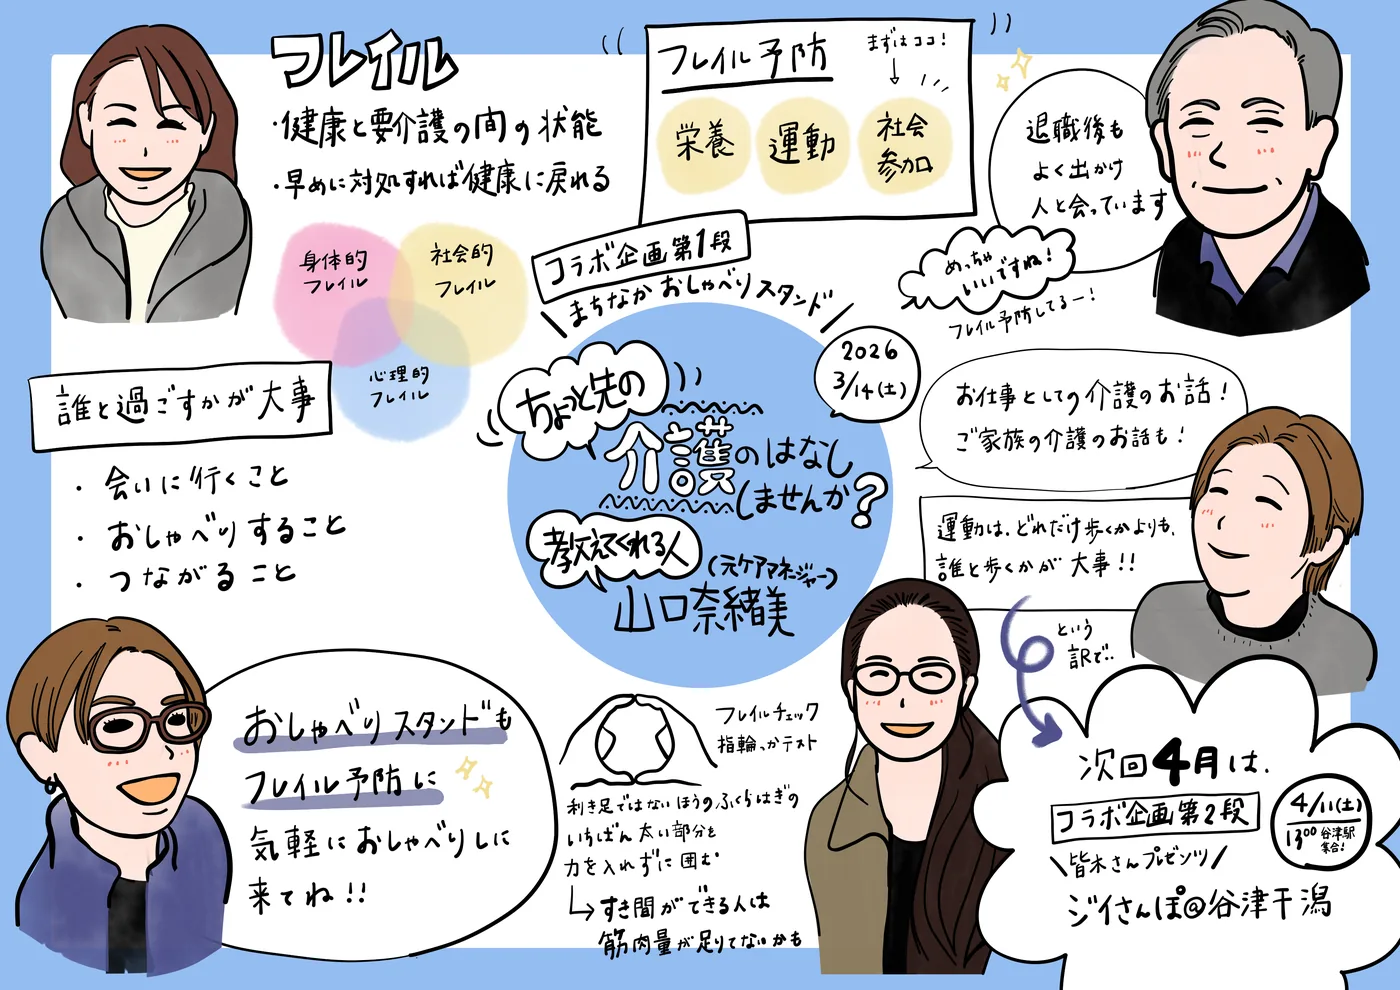 フレイル
・健康と要介護の間の状態
・早めに対処すれば健康に戻れる
身体的
フレイル
社会的
フレイル
心理的
フレイル
フレイル予防
まずはココ!
栄養
運動
社会
参加
退職後も
よく出かけ
人と会っています
めっちゃ
いいですね!
フレイル予防してるー!
コラボ企画第1段
まちなかおしゃべりスタンド
2026
3/14(土)
ちょっと先の
介護のはなし
しませんか?
教えてくれる人
(元ケアマネージャー)
山口奈緒美
誰と過ごすかが大事
・会いに行くこと
・おしゃべりすること
・つながること
お仕事としての介護のお話!
ご家族の介護のお話も!
運動は、どれだけ歩くかよりも、
誰と歩くかが大事!!
という
訳で..
おしゃべりスタンドも
フレイル予防に
気軽におしゃべりしに
来てね!!
フレイルチェック
指輪っかテスト
利き足ではないほうのふくらはぎの
いちばん太い部分を
力を入れずに囲む
→すき間ができる人は
筋肉量が足りてないかも
次回4月は、
コラボ企画第2段
4/11(土)
13:00 谷津駅
集合!
\皆木さんプレゼンツ/
ジイさんぽ@谷津干潟